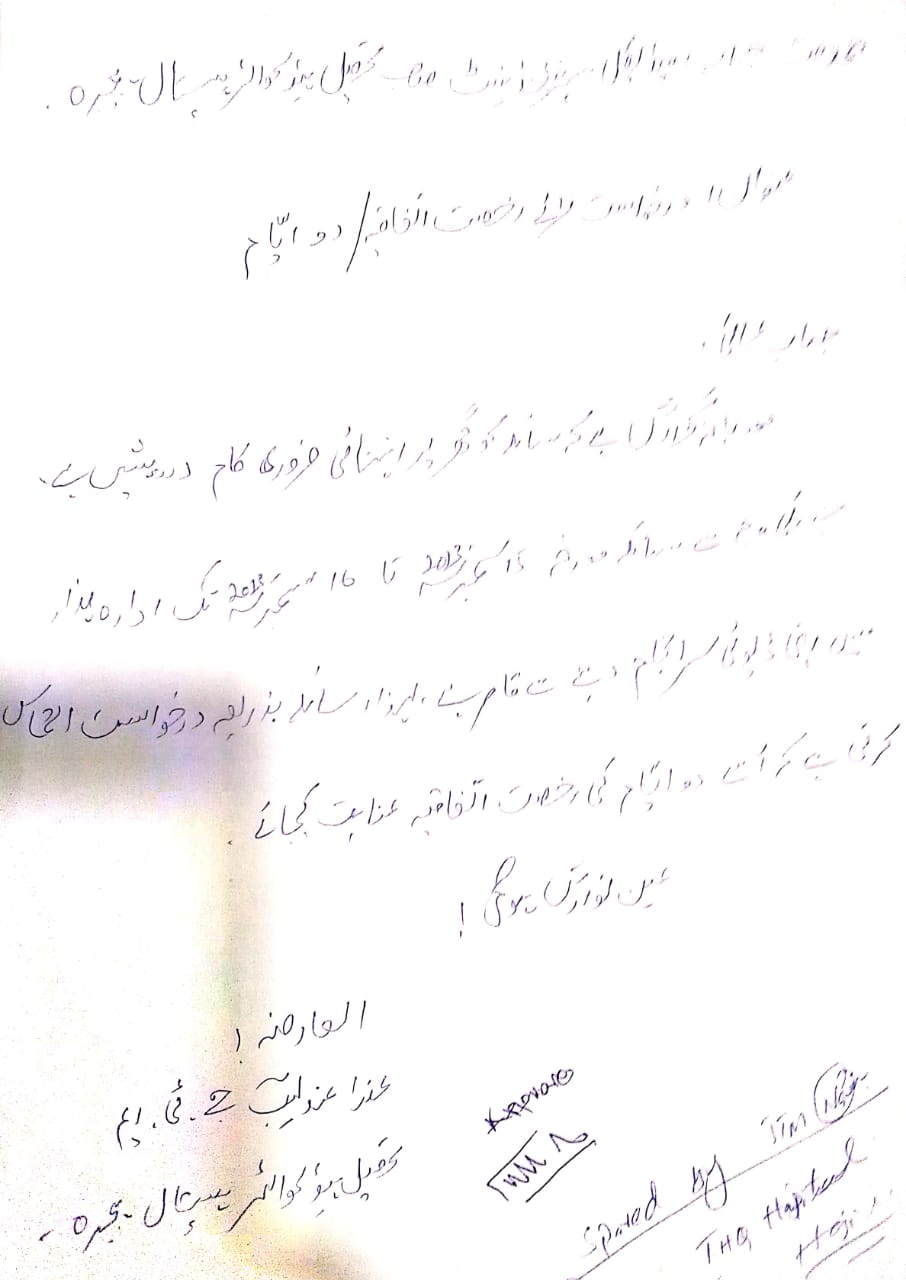 بخدمت جناب میڈیکل سپرنٹنڈنٹ صاحب تحصیل ہیڈ کوارٹر ہسپتال۔ ہجیرہ۔
عنوان: درخواست برائے رخصت اتفاقیہ / دو ایّام
جناب عالی!
گزارش ہے کہ سائلہ کو گھر پر انتہائی ضروری کام درپیش ہے۔
جس کی وجہ سے سائلہ مورخہ 15 ستمبر 2023 تا 16 ستمبر 2023 تک ادارہ ہذا
میں اپنی ڈیوٹی سر انجام دینے سے قاصر ہے۔ لہذا، سائلہ بذریعہ درخواست التماس
کرتی ہے کہ اُسے دو ایّام کی رخصت اتفاقیہ عنایت کی جائے۔
عین نوازش ہوگی!
العارضہ!
عذرا عندلیب جے۔ ٹی۔ ایم
تحصیل ہیڈ کوارٹر ہسپتال۔ ہجیرہ۔
By JTM
THQ